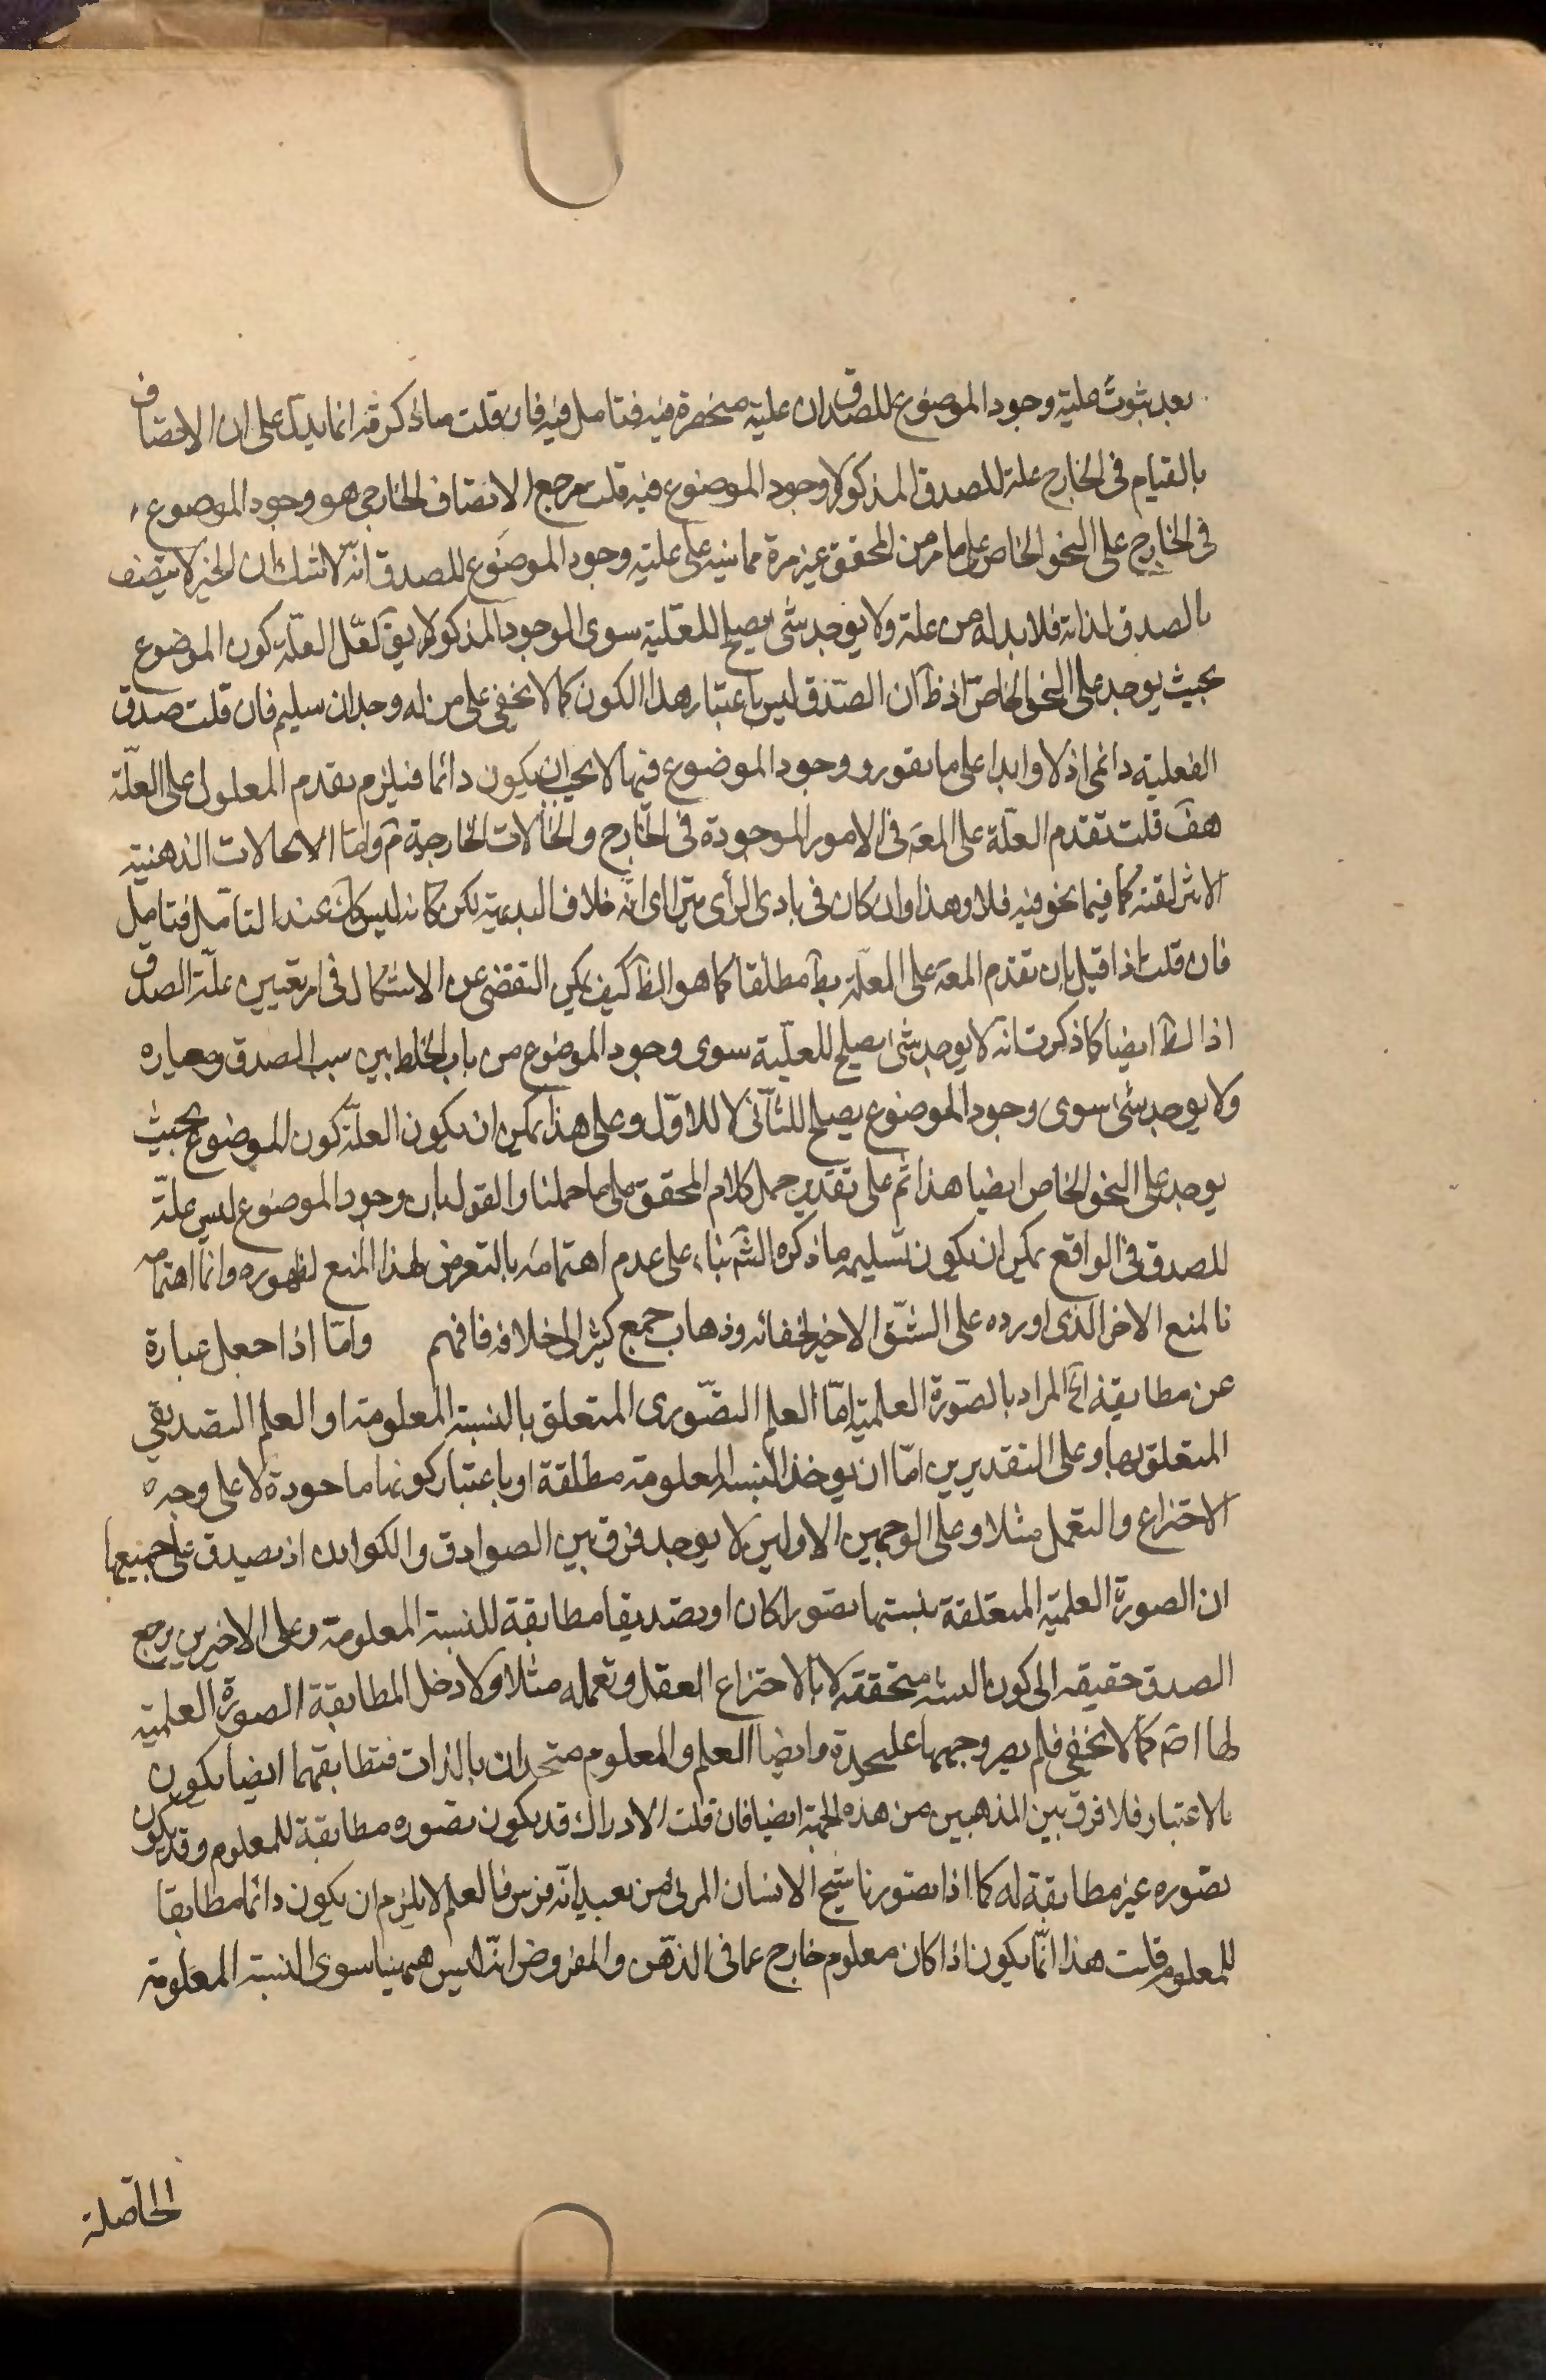 بعد ثبوت علية وجود الموضوع للصدق ان علية منحصرة فيه فتامل فيه فان قلت ما ذكرته انما يدل على ان الاتصاف
بالقيام فى الخارج علة للصدق المذكور لا وجود الموضوع فيه قلت مرجع الاتصاف الخارجى هو وجود الموضوع
فى الخارج على النحو الخاص على ما مر من المحقق غير مرة مما ينبه على علية وجود الموضوع للصدق انه لا شك ان الخبر لا يتصف
بالصدق لذاته فلا بد له من علة ولا يوجد شئ يصلح للعلية سوى الوجود المذكور لا يق لعل العلة كون الموضوع
بحيث يوجد على النحو الخاص اذ ظ ان الصدق ليس باعتبار هذا الكون كما لا يخفى على من له وجدان سليم فان قلت صدق
الفعلية دائمى اذلا وابدا على ما تقرر و وجود الموضوع فيها لا يجب ان يكون دائما فيلزم تقدم المعلول على العلة
هف قلت تقدم العلة على المعه فى الامور الموجودة فى الخارج والحالات الخارجية م واما الحالات الذهنية
الاتفاقية كما فيما نحو فيه فلا وهذا وان كان فى بادى الرأى يترااى انه خلاف البديهية لكن كانه ليس كك عند التامل فتامل
فان قلت اذا قيل بان تقدم المعه على العلة بط مطلقا كما هو الظ كيف يمكن التفصى عن الاشكال فى امر تعيين علة الصدق
اذ الظ ايضا كما ذكرت انه لا يوجد شئ يصلح للعلية سوى وجود الموضوع من باب الخلط بين سبب الصدق ومعياره
ولا يوجد شئ سوى وجود الموضوع يصلح للثانى لا للاول وعلى هذا يمكن ان يكون العلة كون الموضوع بحيث
يوجد على النحو الخاص ايضا هذا ثم على تقدير حمل كلام المحقق على ما حملنا والقول بان وجود الموضوع ليس علة
للصدق فى الواقع يمكن ان يكون تسليمه ما ذكره الشه بناء على عدم اهتمامه بالتعرض لهذا المنع لظهوره وانما اهتمامه
بالمنع الاخر الذى اورده على الشق الاخير لخفائه وذهاب جمع كثير الى خلافه فافهم واما اذا جعل عبارة
عن مطابقة الخ المراد بالصورة العلمية اما العلم التصورى المتعلق بالنسبة المعلومة او العلم التصديقى
المتعلق بها وعلى التقديرين اما ان يوخذ النسبة المعلومة مطلقة او باعتبار كونها ماخوذة لا على وجه
الاختراع والتعمل مثلا وعلى الوجهين الاولين لا يوجد فرق بين الصوادق والكواذب اذ يصدق على جميعها
ان الصورة العلمية المتعلقة بنسبتها تصورا كان او تصديقا مطابقة للنسبة المعلومة وعلى الاخيرين يرجع
الصدق حقيقة الى كون النسبة متحققة لا بالاختراع العقل وتعمله مثلا ولا دخل لمطابقة الصورة العلمية
لها اصه كما لا يخفى فلم يصر وجهها عليحدة وايضا العلم والمعلوم متحدان بالذات فتطابقهما ايضا يكون
بالاعتبار فلا فرق بين المذهبين من هذه الجهة ايضا فان قلت الادراك قد يكون تصوره مطابقة للمعلوم وقد يكون
تصوره غير مطابقة له كما اذا تصورنا شبح الانسان المرئى من بعيد انه فرس فالعلم لا يلزم ان يكون دائما مطابقا
للمعلوم قلت هذا انما يكون اذا كان معلوم خارج عما فى الذهن والمفروض انه ليس ههنا سوى النسبة المعلومة
الحاصلة